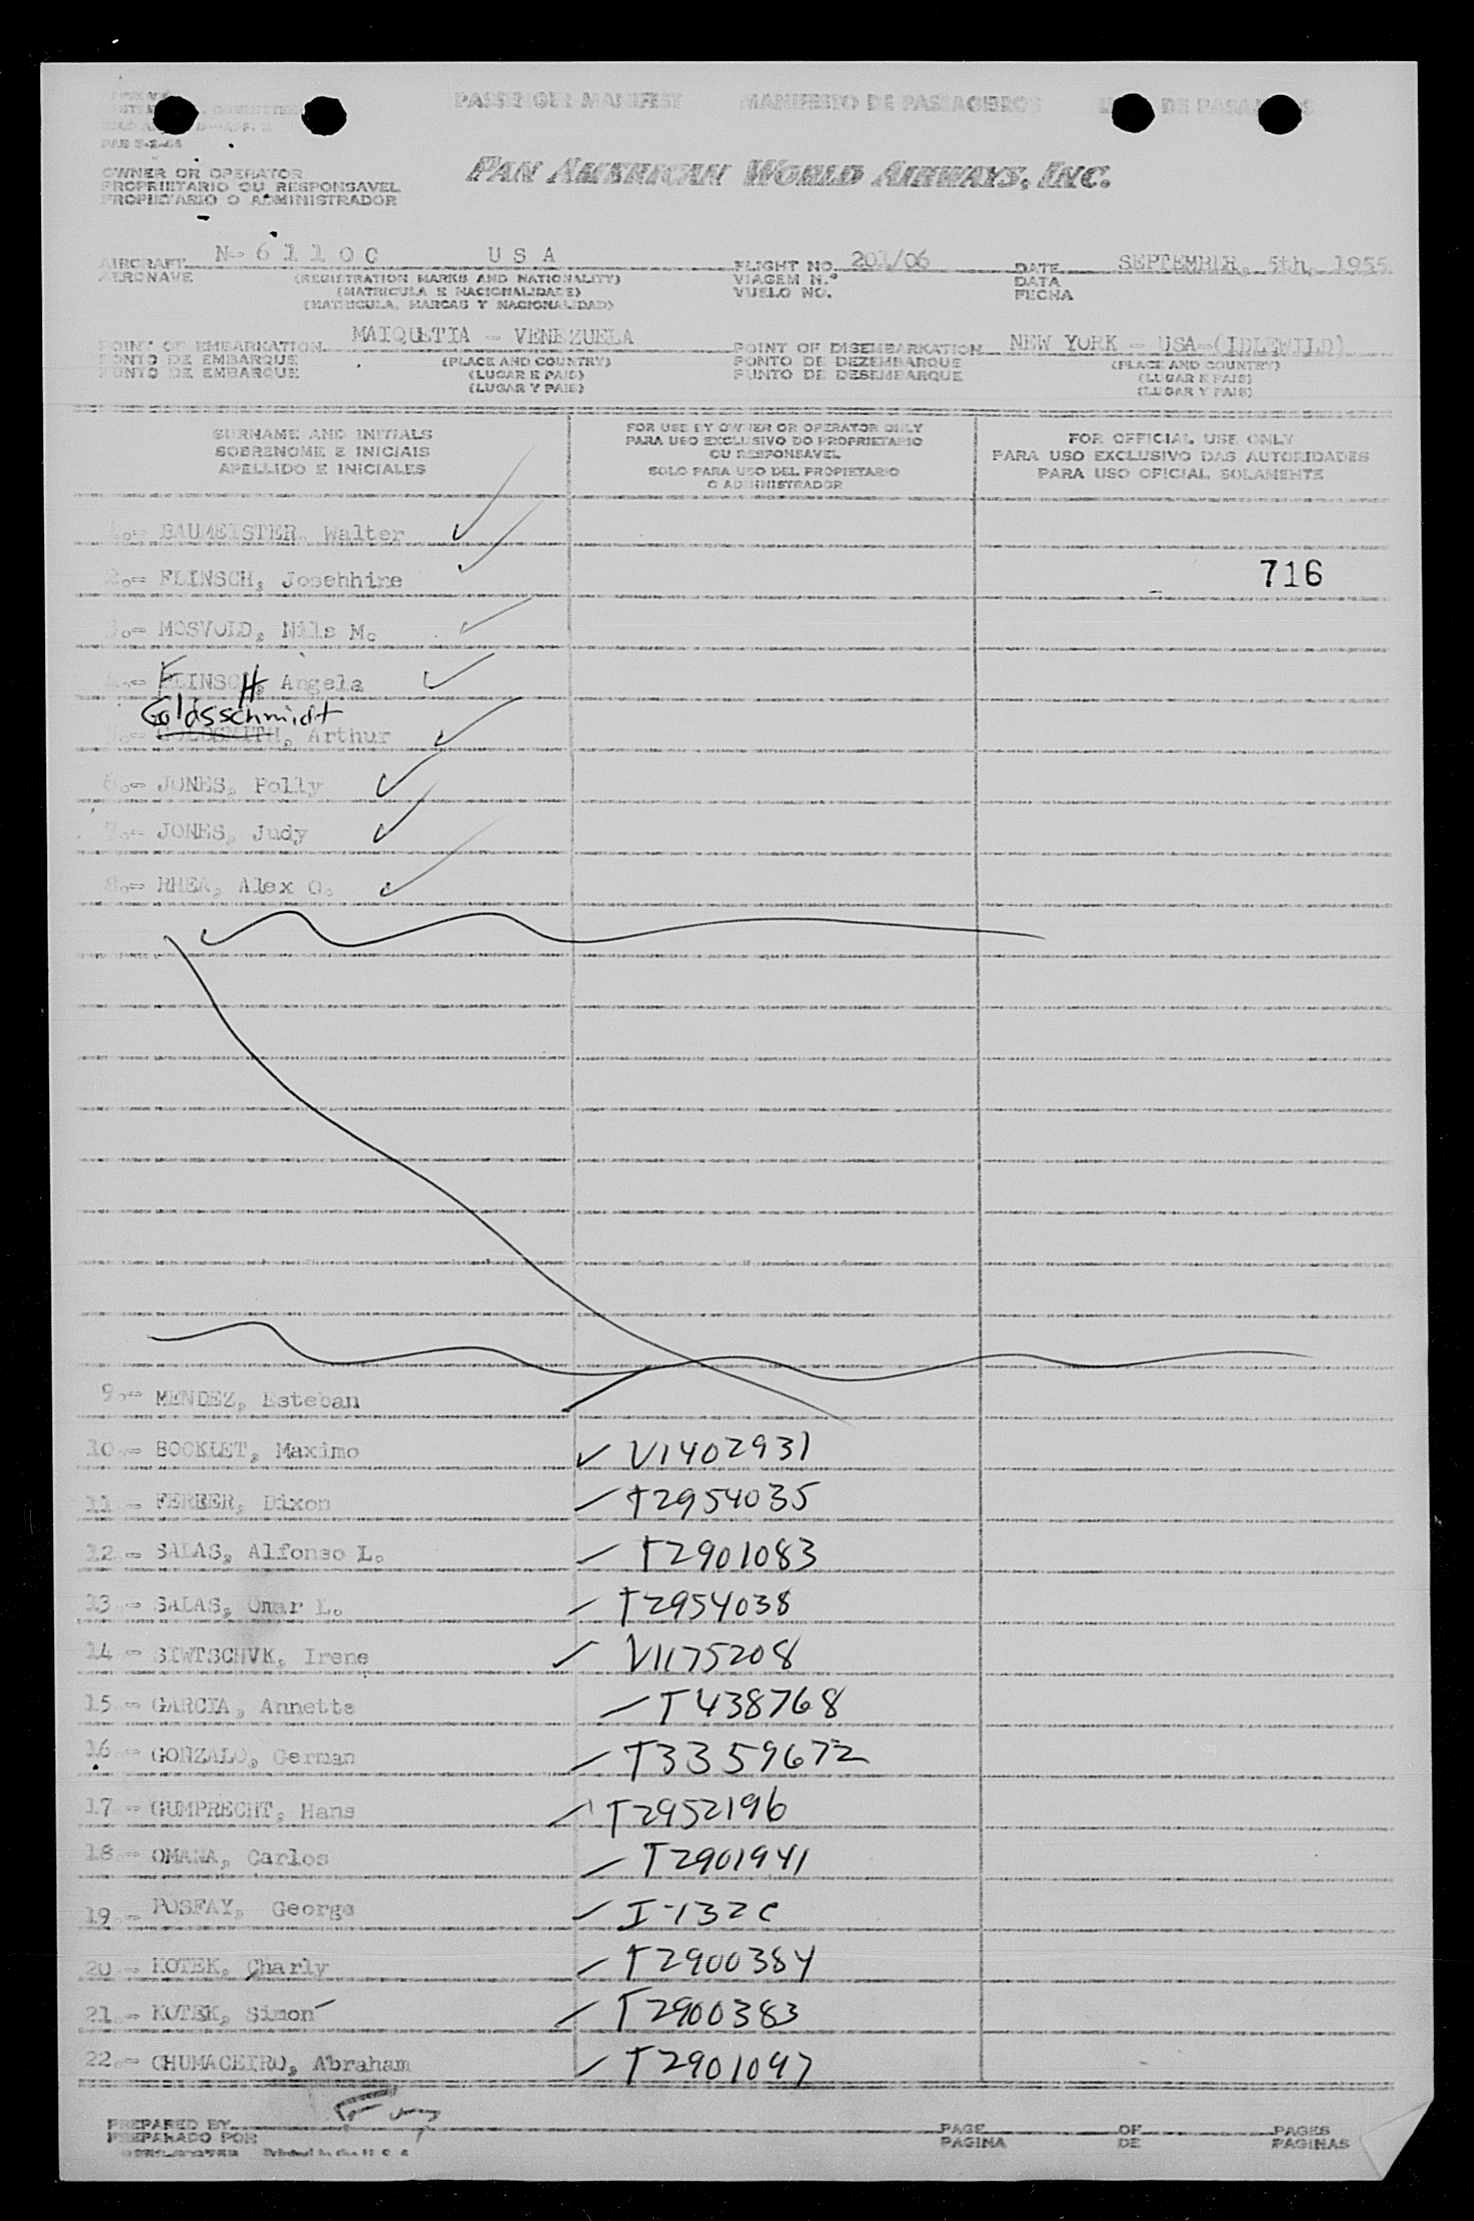 PASSENGER MANIFEST MANIFESTO DE PASSAGEIROS DE
OWNER OR OPERATOR
PROPRIETARIO OU RESPONSAVEL
PROPIETARIO O ADMINISTRADOR
PAN AMERICAN WORLD AIRWAYS, INC.
AIRCRAFT N- 6 1 1 0 C U S A FLIGHT NO. 201/06 DATE SEPTEMBER, 5th, 1955
AERONAVE (REGISTRATION MARKS AND NATIONALITY) VIAGEM N.º DATA
(MATRICULA E NACIONALIDADE) VUELO NO. FECHA
(MATRICULA, MARCAS Y NACIONALIDAD)
POINT OF EMBARKATION MAIQUETIA - VENEZUELA POINT OF DISEMBARKATION NEW YORK - USA-(IDLEWILD)
PONTO DE EMBARQUE (PLACE AND COUNTRY) PONTO DE DEZEMBARQUE (PLACE AND COUNTRY)
PUNTO DE EMBARQUE (LUGAR E PAIS) PUNTO DE DESEMBARQUE (LUGAR E PAIS)
(LUGAR Y PAIS) (LUGAR Y PAIS)
SURNAME AND INITIALS
SOBRENOME E INICIAIS
APELLIDO E INICIALES
FOR USE BY OWNER OR OPERATOR ONLY
PARA USO EXCLUSIVO DO PROPRIETARIO
OU RESPONSAVEL
SOLO PARA USO DEL PROPIETARIO
O ADMINISTRADOR
FOR OFFICIAL USE ONLY
PARA USO EXCLUSIVO DAS AUTORIDADES
PARA USO OFICIAL SOLAMENTE
1.- BAUMEISTER, Walter
2.- FLINSCH, Josehhine 716
3.- MOSVOLD, Nils M.
4.- FLINSCH, Angela
Goldsschmidt
5.- GOLDSMITH, Arthur
6.- JONES, Polly
7.- JONES, Judy
8.- RHEA, Alex O.
9.- MENDEZ, Esteban
10.- BOCKLET, Maximo V1402931
11.- FERRER, Dixon T2954035
12.- SALAS, Alfonso L. T2901083
13.- SALAS, Omar L. T2954038
14.- SIWTSCHVK, Irene V1175208
15.- GARCIA, Annette T438768
16.- GONZALO, German T3359672
17.- GUMPRECHT, Hans T2952196
18.- OMANA, Carlos T2901941
19.- POSFAY, George I-132C
20.- KOTEK, Charly T2900384
21.- KOTEK, Simon T2900383
22.- CHUMACEIRO, Abraham T2901097
PREPARED BY PAGE OF PAGES
PREPARADO POR PAGINA DE PAGINAS
Printed in the U.S.A.